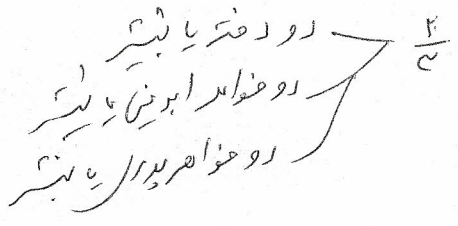 دو دختر یا بیشتر
دو خواهر ابوینی یا بیشتر
دو خواهر پدری یا بیشتر
۲/۳